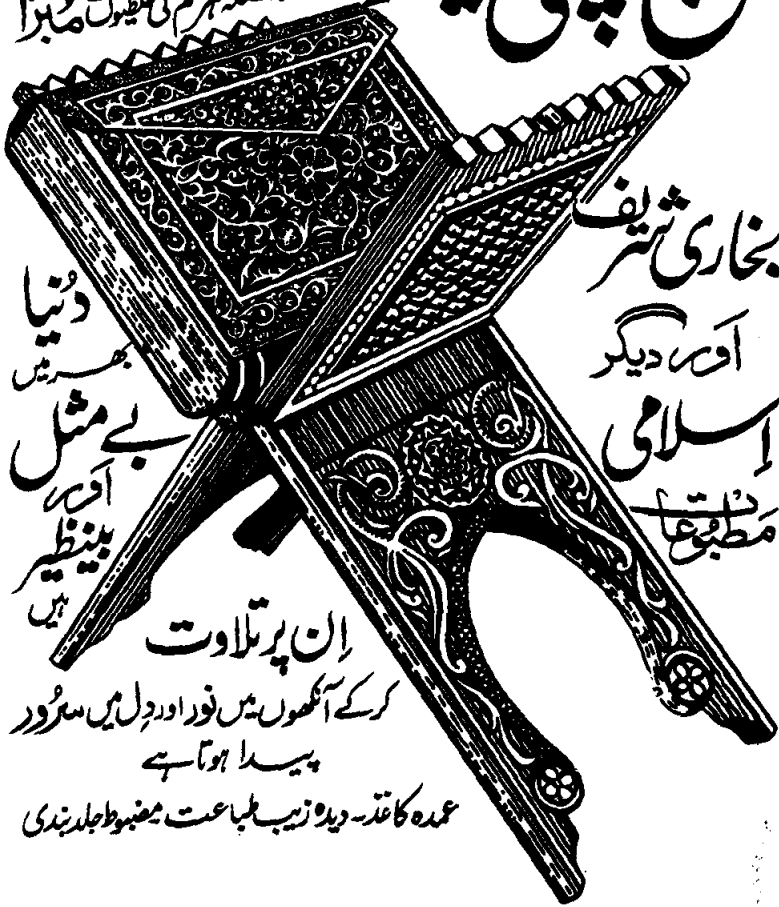 ہر قسم کی غلطیوں مبرا
بخاری شریف
اور دیگر
اسلامی
مطبوعات
دُنیا
بھر میں
بے مثل
اور
بینظیر
ہیں
اِن پر تلاوت
کر کے آنکھوں میں نور اور دِل میں سرُور
پیدا ہوتا ہے
عمدہ کاغذ۔ دیدہ زیب طباعت مضبوط جلد بندی